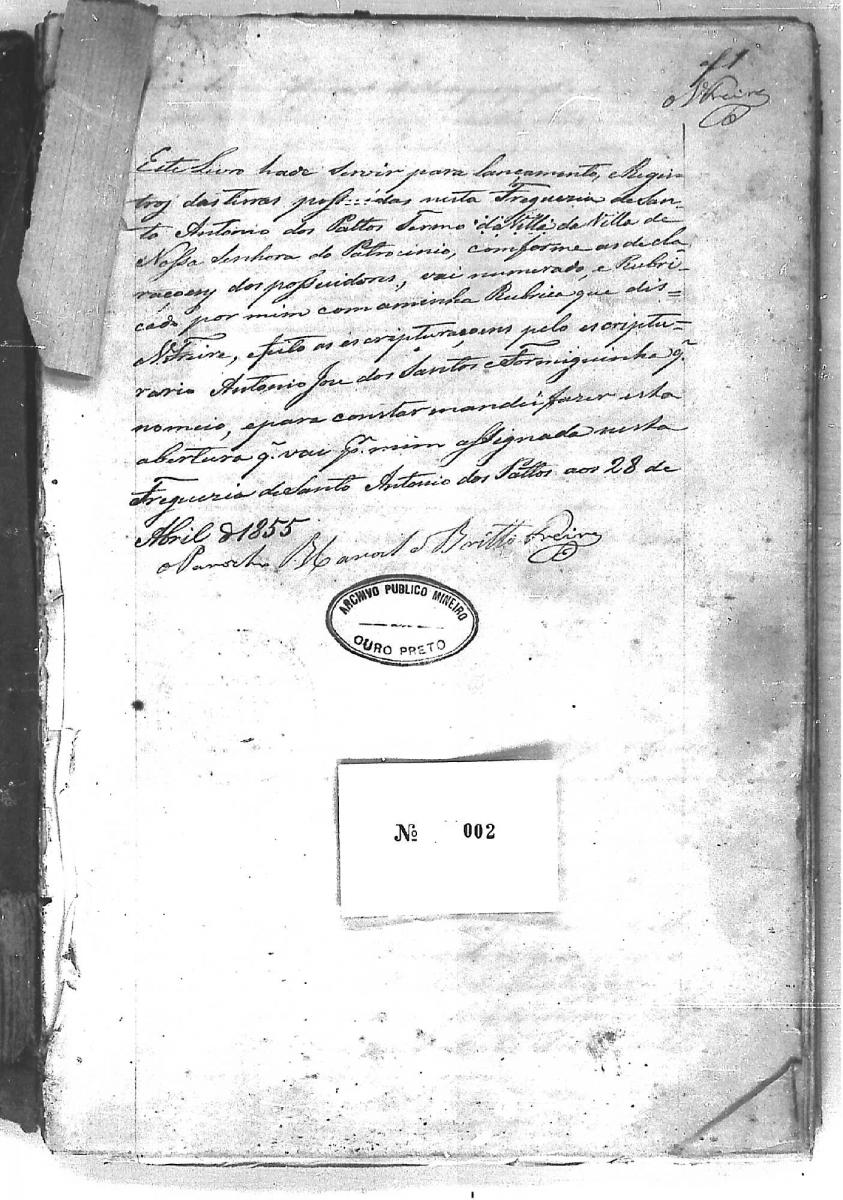 f 1
N Freire
Este Livro hade servir para lançamento, e Regis=
tros das terras poss---das nesta Freguezia de San=
to Antonio dos Pattos Termo da Villa de Villa de
Nossa Senhora do Patrocinio, comforme as decla
raçoens dos possuidores, vai numerado, e Rubri=
cado por mim com aminha Rubrica que dis=
N Freire, e feito as escripturaçoens pelo escriptu=
rario Antonio Joze dos Santos Formiguinha q.
nomeio, e para constar mandei fazer esta
abertura q. vai p.r mim assignada nesta
Freguezia de Santo Antonio dos Pattos aos 28 de
Abril d 1855
o Parocho Manoel d Britto Freire
ARCHIVO PUBLICO MINEIRO
OURO PRETO
No 002